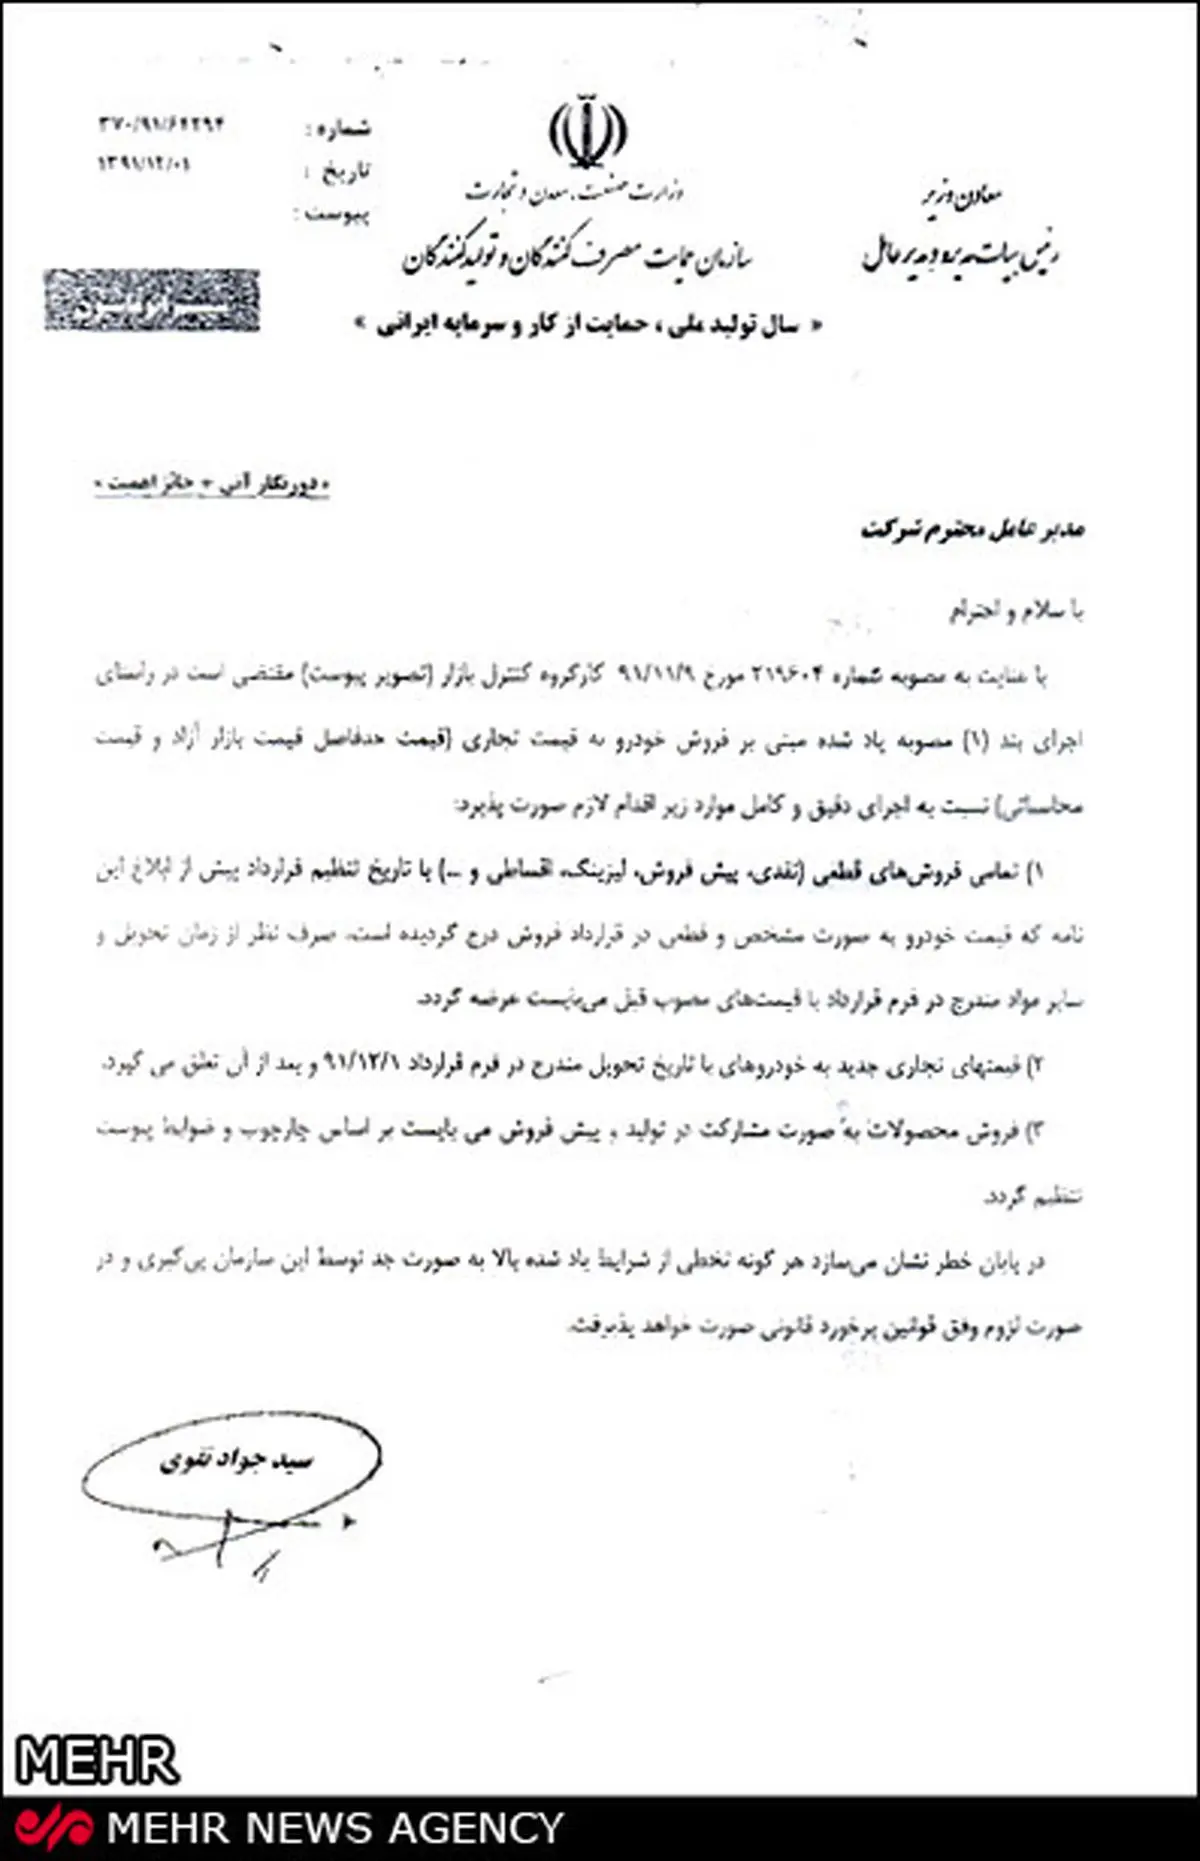 شماره : ۳۷۰/۹۱/۶۴۲۹۴
تاریخ : ۱۳۹۱/۱۲/۰۱
پیوست :
وزارت صنعت، معدن و تجارت
سازمان حمایت مصرف کنندگان و تولیدکنندگان
معاون وزیر
رئیس هیات مدیره و مدیرعامل
« سال تولید ملی ، حمایت از کار و سرمایه ایرانی »
«دورنگار آنی + حائز اهمیت»
مدیر عامل محترم شرکت
با سلام و احترام
با عنایت به مصوبه شماره ۲۱۹۶۰۴ مورخ ۹۱/۱۱/۹ کارگروه کنترل بازار (تصویر پیوست) مقتضی است در راستای
اجرای بند (۱) مصوبه یاد شده مبنی بر فروش خودرو به قیمت تجاری (قیمت حدفاصل قیمت بازار آزاد و قیمت
محاسباتی) نسبت به اجرای دقیق و کامل موارد زیر اقدام لازم صورت پذیرد:
۱) تمامی فروش‌های قطعی (نقدی، پیش فروش، لیزینگ، اقساطی و ...) با تاریخ تنظیم قرارداد پیش از ابلاغ این
نامه که قیمت خودرو به صورت مشخص و قطعی در قرارداد فروش درج گردیده است، صرف نظر از زمان تحویل و
سایر مواد مندرج در فرم قرارداد با قیمت‌های مصوب قبل می‌بایست عرضه گردد.
۲) قیمتهای تجاری جدید به خودروهای با تاریخ تحویل مندرج در فرم قرارداد ۹۱/۱۲/۱ و بعد از آن تعلق می گیرد.
۳) فروش محصولات به صورت مشارکت در تولید و پیش فروش می بایست بر اساس چارچوب و ضوابط پیوست
تنظیم گردد.
در پایان خطر نشان می‌سازد هر گونه تخطی از شرایط یاد شده بالا به صورت جد توسط این سازمان پی‌گیری و در
صورت لزوم وفق قوانین برخورد قانونی صورت خواهد پذیرفت.
سید جواد تقوی
MEHR
MEHR NEWS AGENCY